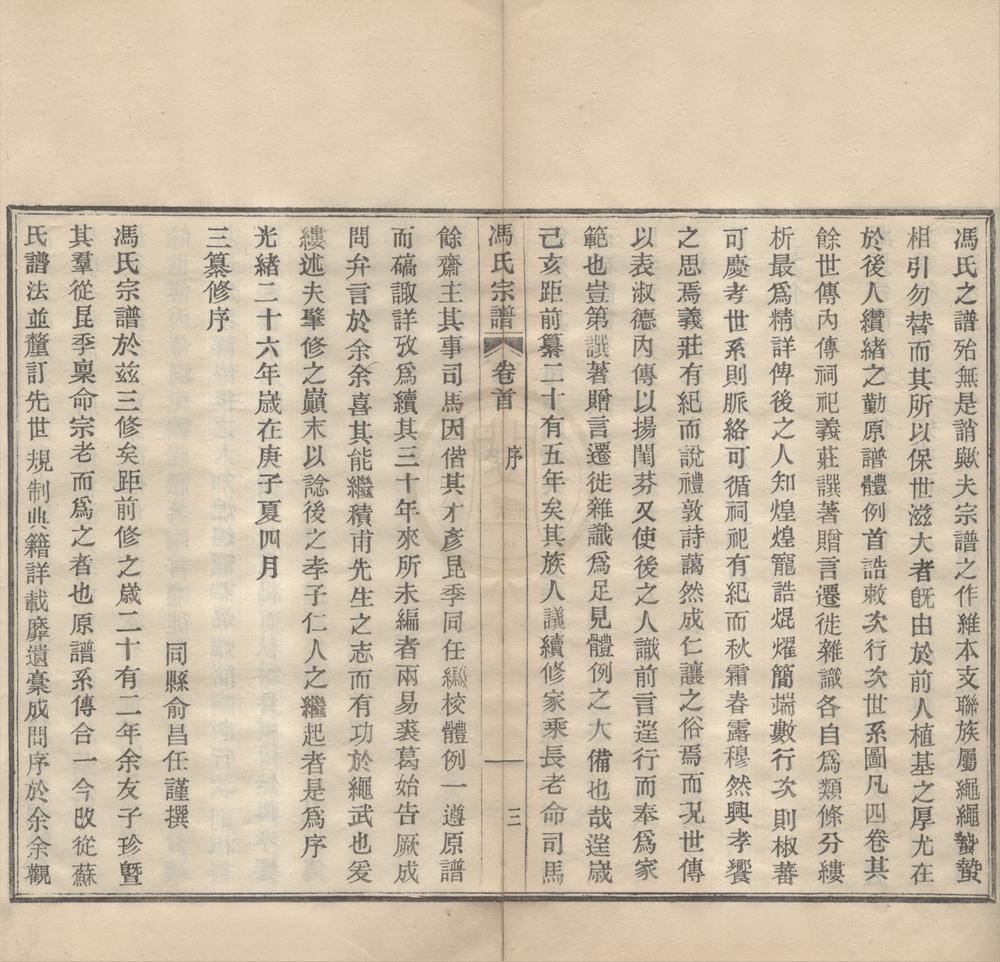 馮氏之譜殆無是誚歟夫宗譜之作維本支聯族屬繩繩蟄蟄
相引勿替而其所以保世滋大者旣由於前人植基之厚尤在
於後人纘緒之勤原譜體例首誥敕次行次世系圖凡四卷其
餘世傳內傳祠祀義莊譔著贈言遷徙雜識各自爲類條分縷
析最爲精詳俾後之人知煌煌寵誥焜燿簡端數行次則椒蕃
可慶考世系則脈絡可循祠祀有紀而秋霜春露穆然興孝饗
之思焉義莊有紀而說禮敦詩藹然成仁讓之俗焉而況世傳
以表淑德內傳以揚閨芬又使後之人識前言逹行而奉爲家
範也豈第譔著贈言遷徙雜識爲足見體例之大備也哉逹歲
己亥距前纂二十有五年矣其族人議續修家乘長老命司馬
馮氏宗譜 卷首 序 三
餘齋主其事司馬因偕其才彥昆季同任編校體例一遵原譜
而碻諏詳攷爲續其三十年來所未編者兩易裘葛始告厥成
問弁言於余余喜其能繼積甫先生之志而有功於繩武也爰
縷述夫肇修之巔末以諗後之孝子仁人之繼起者是爲序
光緒二十六年歲在庚子夏四月
同縣俞昌任謹撰
三纂修序
馮氏宗譜於茲三修矣距前修之歲二十有二年余友子珍曁
其羣從昆季稟命宗老而爲之者也原譜系傳合一今攺從蘇
氏譜法並釐訂先世規制典籍詳載靡遺稾成問序於余余觀